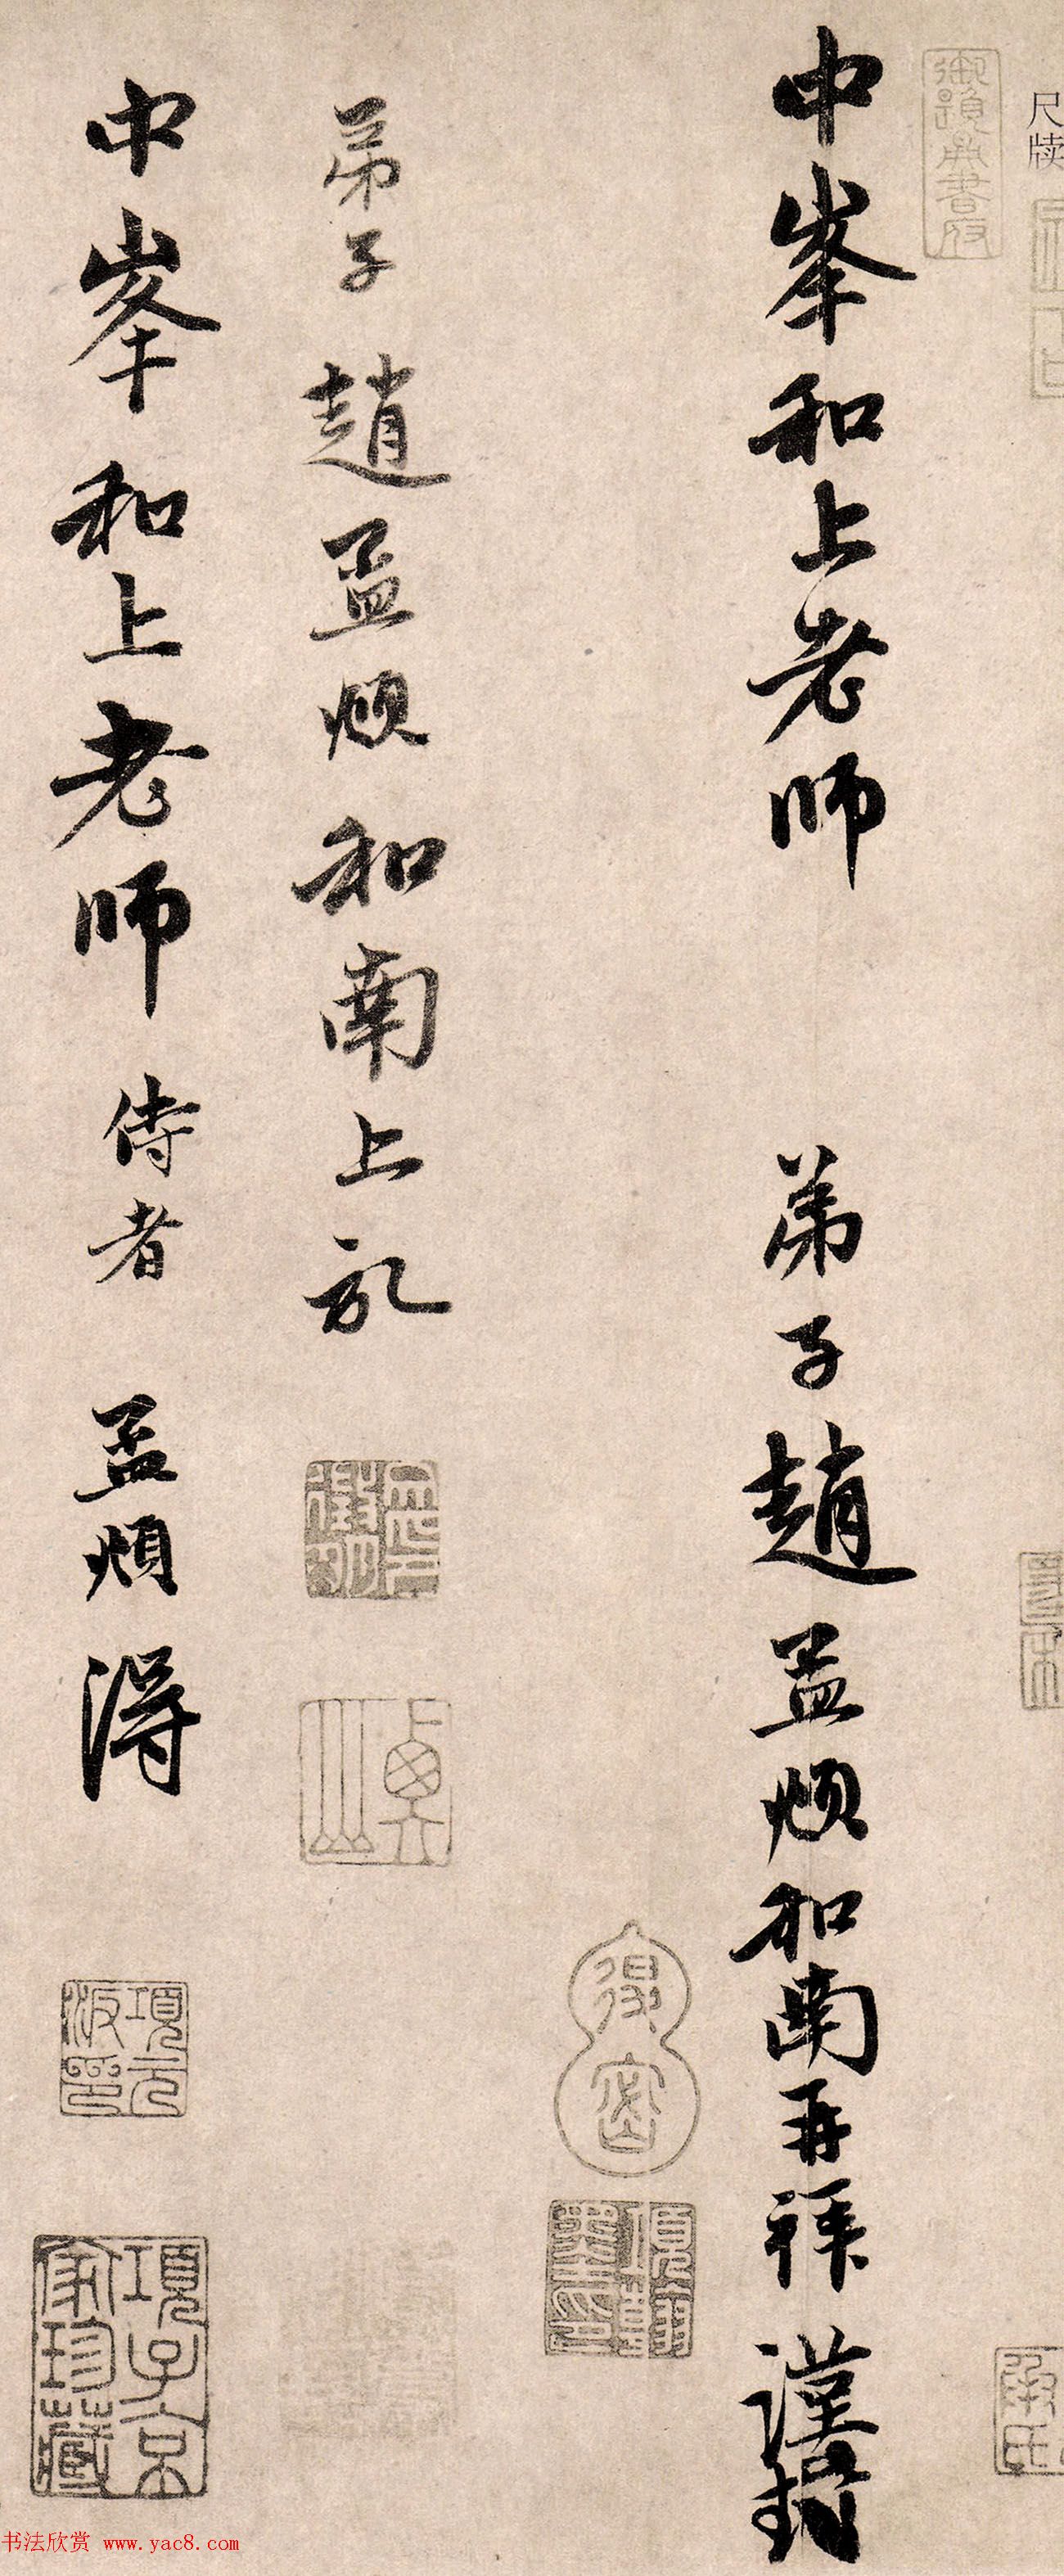 尺牍
中峯和上老師　弟子趙孟頫和南再拜謹封
弟子趙孟頫和南上記
中峯和上老師侍者　孟頫得
御題典書府
得密
項元汴印
項子京家珍藏
书法欣赏 www.yac8.com